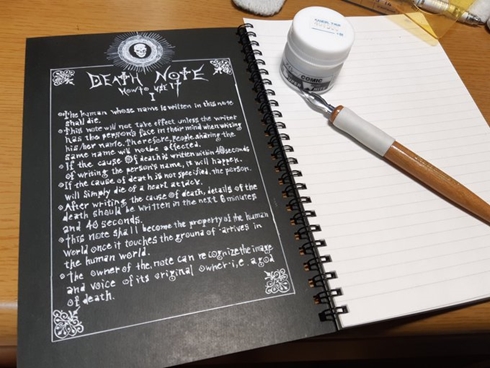 DEATH NOTE
HOW TO USE IT
I
The human whose name is written in this note
shall die.
This note will not take effect unless the writer
has the person's face in their mind when writing
his/her name. Therefore, people sharing the
same name will not be affected.
If the cause of death is written within 40seconds
of writing the person's name, it will happen.
If the cause of death is not specified, the person
will simply die of a heart attack.
After writing the cause of death, details of the
death should be written in the next 6 minutes
and 40 seconds.
This note shall become the property of the human
world once it touches the ground of (arrives in)
the human world.
The owner of the note can recognize the image
and voice of its original owner, i.e. a god
of death.
COMIC